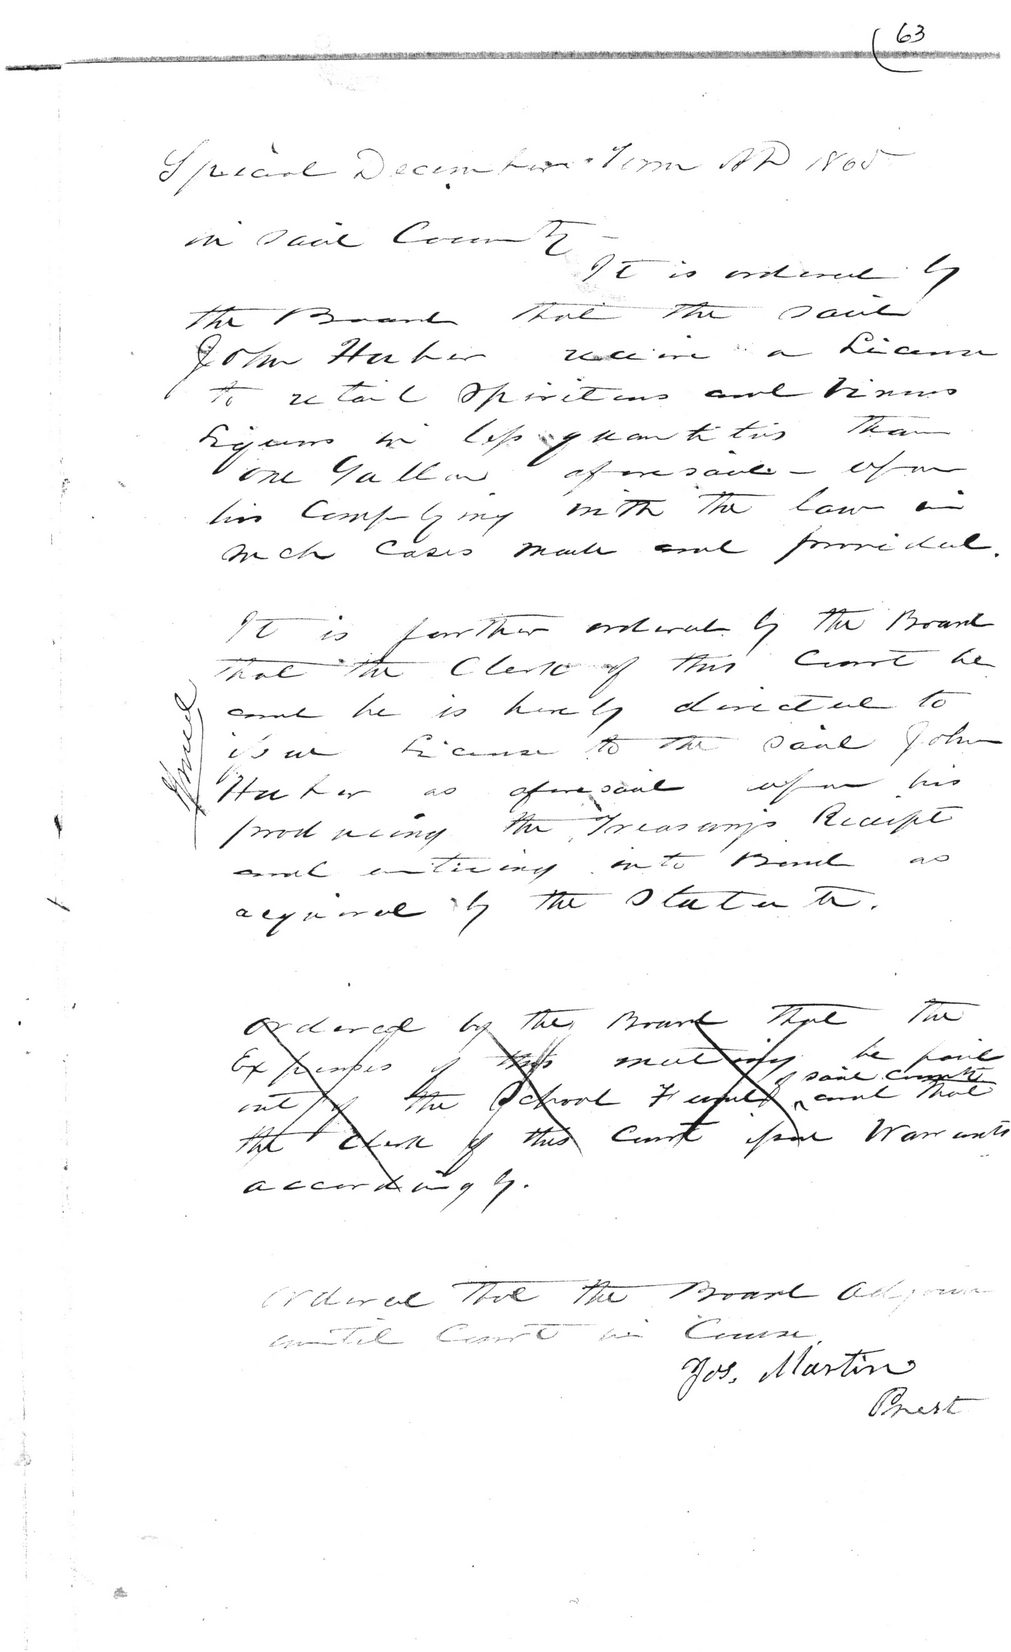 63
Special December Term AD 1865
in said County –
It is ordered by
the Board that the said
John Huber receive a License
to retail Spiritous and Vinous
Liquors in less quantities than
one Gallon aforesaid – upon
his Complying with the law in
such Cases made and provided.
It is further ordered by the Board
that the Clerk of this Court be
and he is hereby directed to
Issued
issue License to the said John
Huber as aforesaid upon his
producing the Treasury's Receipt
and entering into Bond as
required by the Statute.
Ordered by the Board that the
Expenses of this meeting be paid
of said County
out of the School Fund and that
the Clerk of this Court issue Warrants
accordingly.
Ordered that the Board Adjourn
until Court in Course
Jos. Martin
Prest